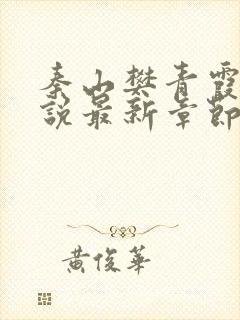 秦山樊青霞
說最新章節
黃俊華